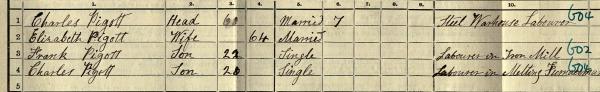 1. 2. 3. 4. 5. 6. 10.
1 Charles Pigott Head 60 Married 7 Steel Warhouse Labourer 604
2 Elizabeth Pigott Wife 64 Married
3 Frank Pigott Son 22 Single Labourer in Iron Mill 602
4 Charles Pigott Son 20 Single Labourer in Melting 604
5